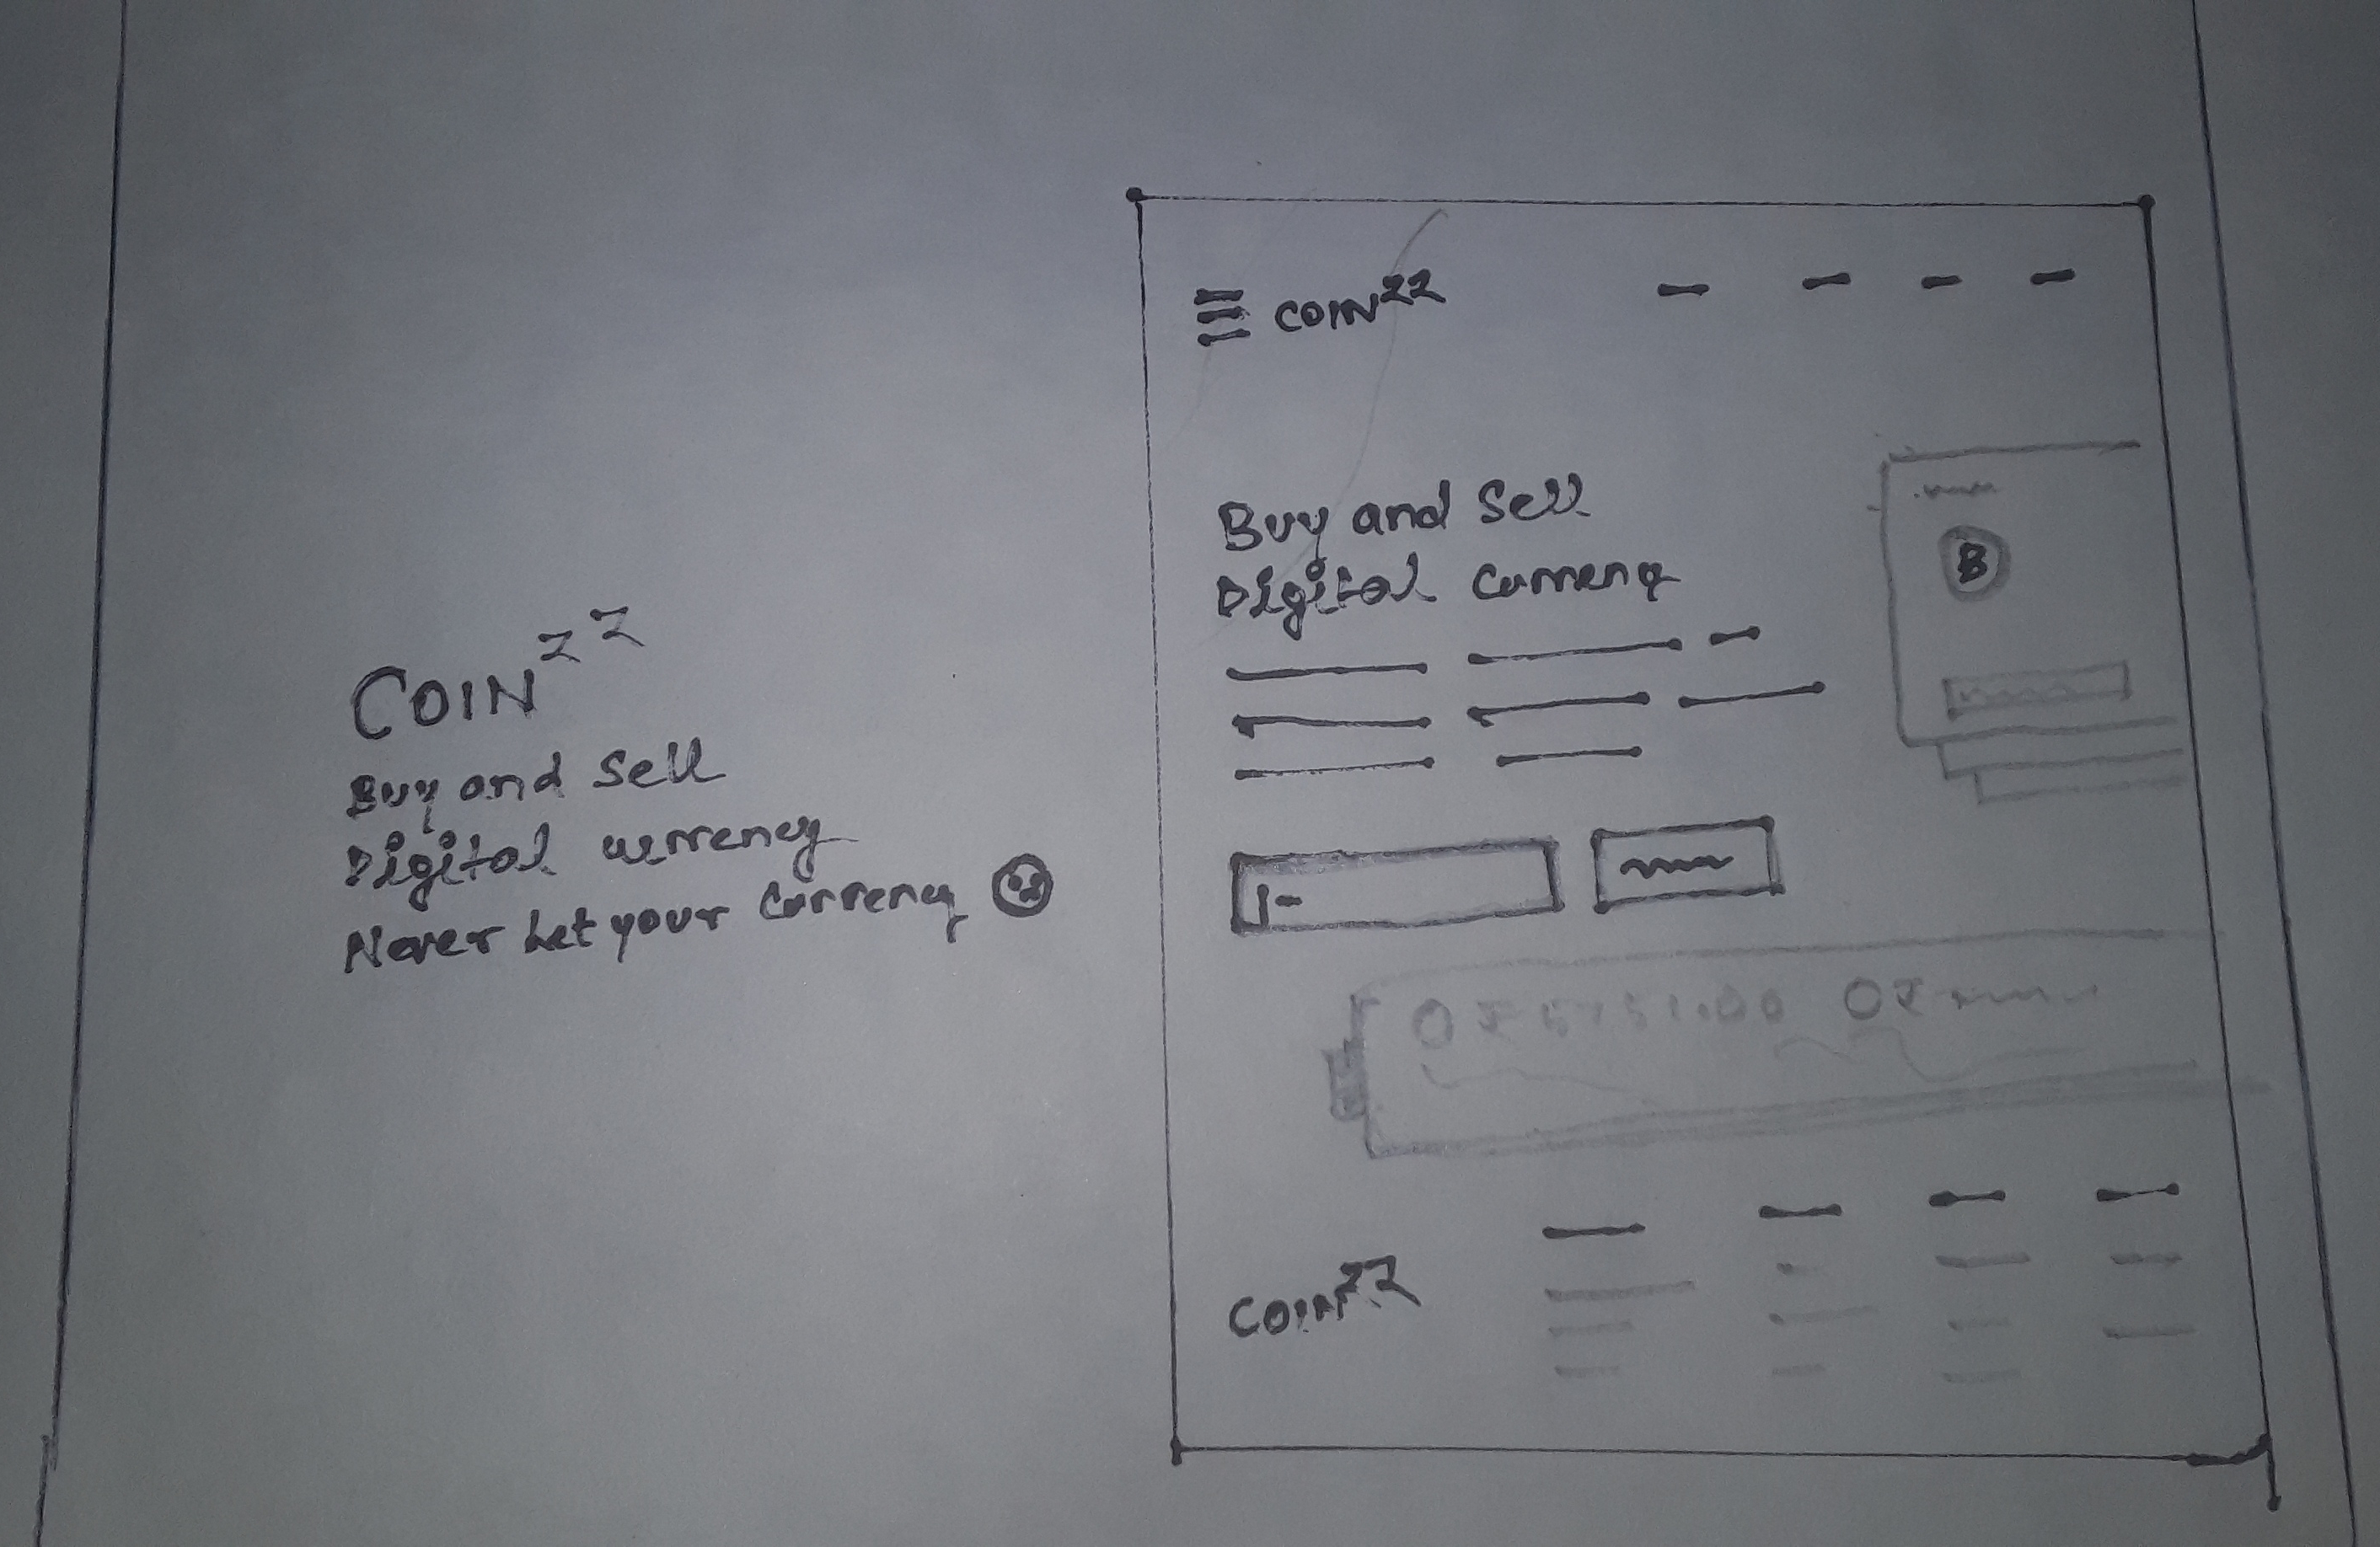 COIN ZZ
Buy and Sell
Digital currency
Never Let your Currency
COIN ZZ
Buy and Sell
Digital
B
COIN ZZ